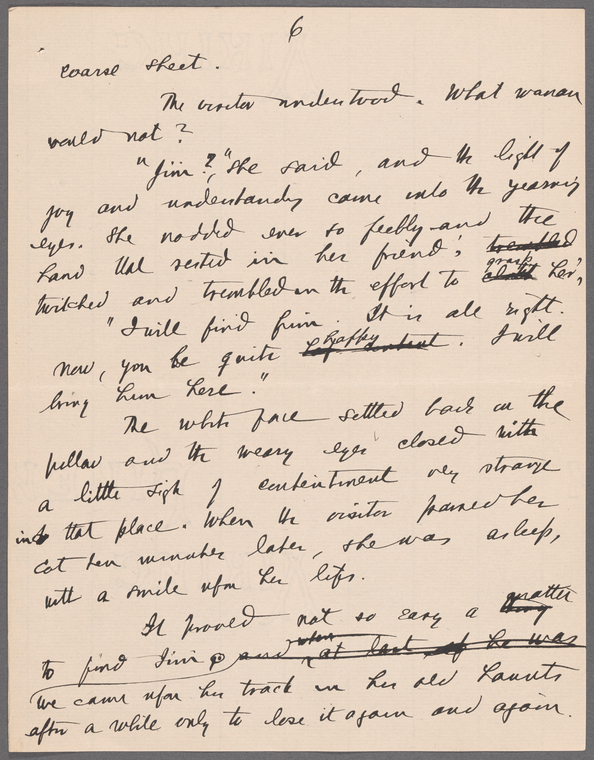 6
coarse sheet.
The visitor understood. What woman
would not?
"Jim?," she said, and the light of
joy and understanding came into the yearning
eyes. She nodded ever so feebly and the
hand that rested in her friend's trembled
twitched and trembled in the effort to grasp her's,
"I will find him. It is all right.
Now, you be quite happy content. I will
bring him here."
The white face settled back on the
pillow and the weary eyes closed with
a little sigh of contentment very strange
in that place. When the visitor passed her
cot ten minutes later, she was asleep,
with a smile upon her lips.
It proved not so easy a matter thing
to find Jim. and when at last he was
we came upon his track in his old haunts
after a while only to lose it again and again.